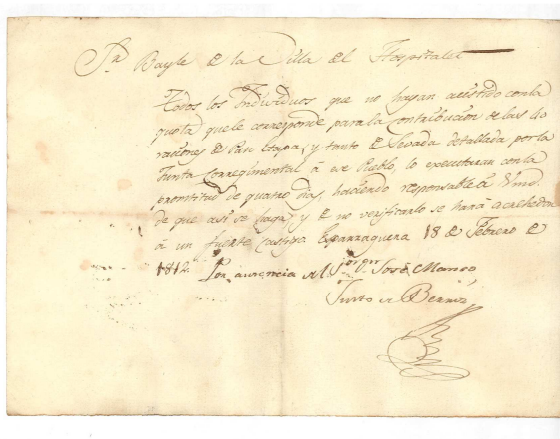 Sr. Bayle de la Villa del Hospitalet
Todos los Individuos que no hayan asistido con la
quota que le corresponde para la contribucion de las
raciones de Pan Etapa, y tanto de Sevada detallada por la
Junta Corregimental á ese Pueblo, lo executaran con la
prontitud de quatro dias, haciendo responsable á Vmd.
de que asi se haga, y de no verificarlo se hará acrehedor
á un fuerte castigo. Esparraguera 18 de Febrero de
1812. Por ausencia del Sor. Josè Manso
Justo de Berriz